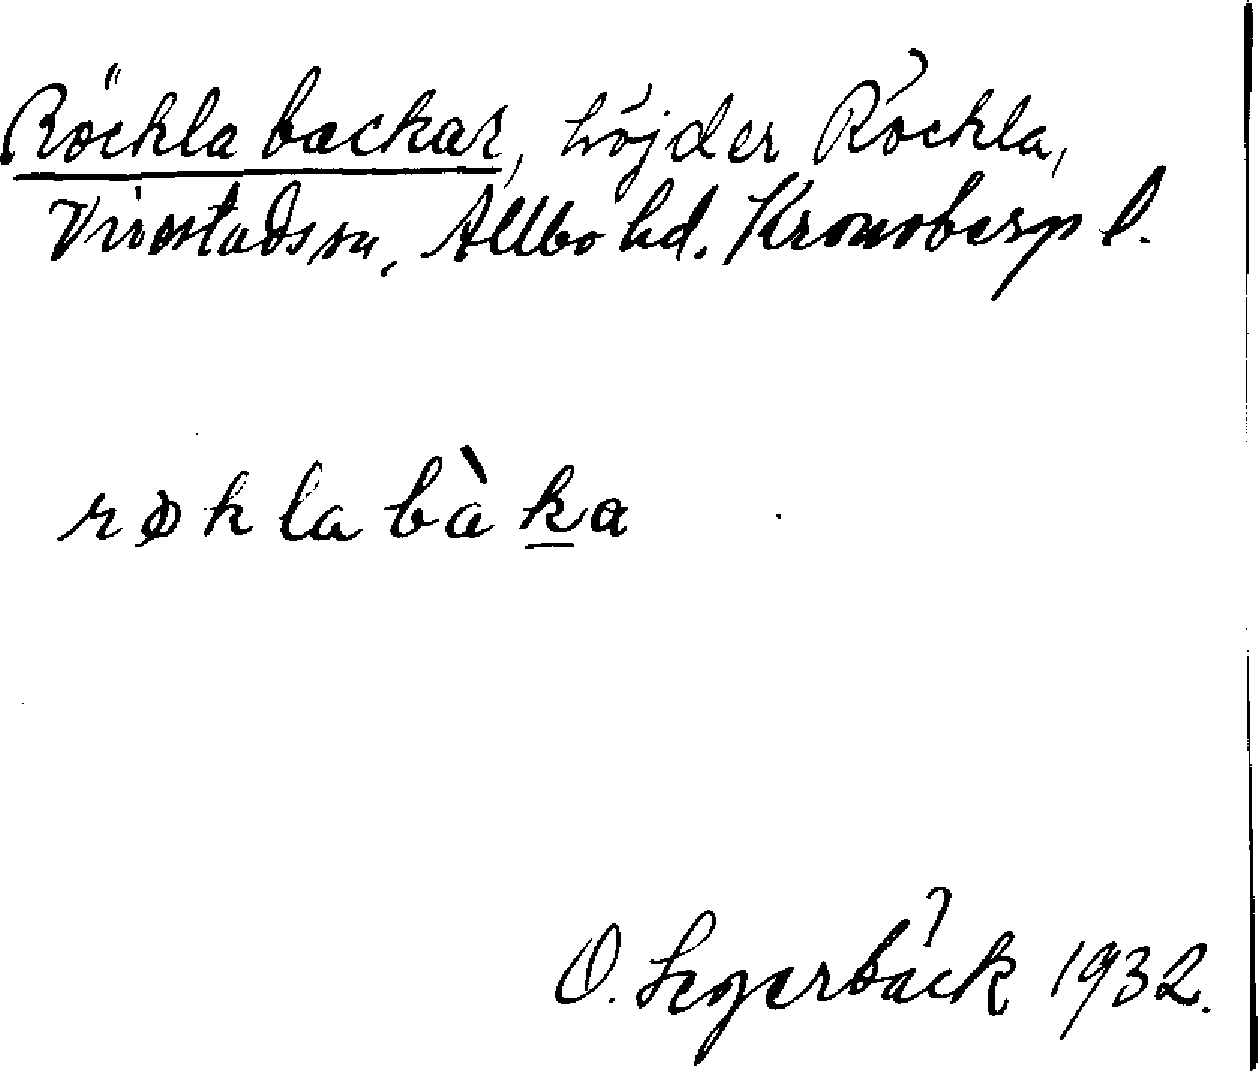 Röckla backar, höjder Röckla,
Virestads sn, Allbo hd. Kronobergs l.
røklabàka
O. Segerbäck 1932.